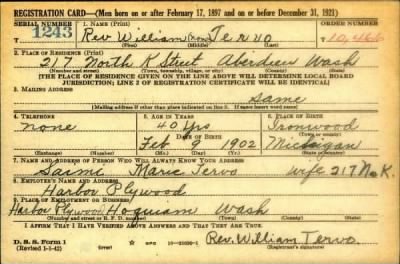 REGISTRATION CARD—(Men born on or after February 17, 1897 and on or before December 31, 1921)
SERIAL NUMBER 1. NAME (Print) ORDER NUMBER
1243 Rev. William (none) Tervo 10,466
(First) (Middle) (Last)
2. PLACE OF RESIDENCE (Print)
217 North K Street Aberdeen Wash
(Number and street) (Town, township, village, or city) (County) (State)
[THE PLACE OF RESIDENCE GIVEN ON THE LINE ABOVE WILL DETERMINE LOCAL BOARD
JURISDICTION; LINE 2 OF REGISTRATION CERTIFICATE WILL BE IDENTICAL]
3. MAILING ADDRESS
Same
[Mailing address if other than place indicated on line 2. If same insert word same]
4. TELEPHONE 5. AGE IN YEARS 6. PLACE OF BIRTH
none 40 Yrs Ironwood
DATE OF BIRTH (Town or county)
Feb 9 1902 Michigan
(Exchange) (Number) (Mo.) (Day) (Yr.) (State or country)
7. NAME AND ADDRESS OF PERSON WHO WILL ALWAYS KNOW YOUR ADDRESS
Saimi Marie Tervo wife 217 No K.
8. EMPLOYER'S NAME AND ADDRESS
Harbor Plywood
9. PLACE OF EMPLOYMENT OR BUSINESS
Harbor Plywood Hoquiam Wash
(Number and street or R. F. D. number) (Town) (County) (State)
I AFFIRM THAT I HAVE VERIFIED ABOVE ANSWERS AND THAT THEY ARE TRUE.
D. S. S. Form 1
(Revised 1-1-42) Rev. William Tervo
(Registrant's signature)